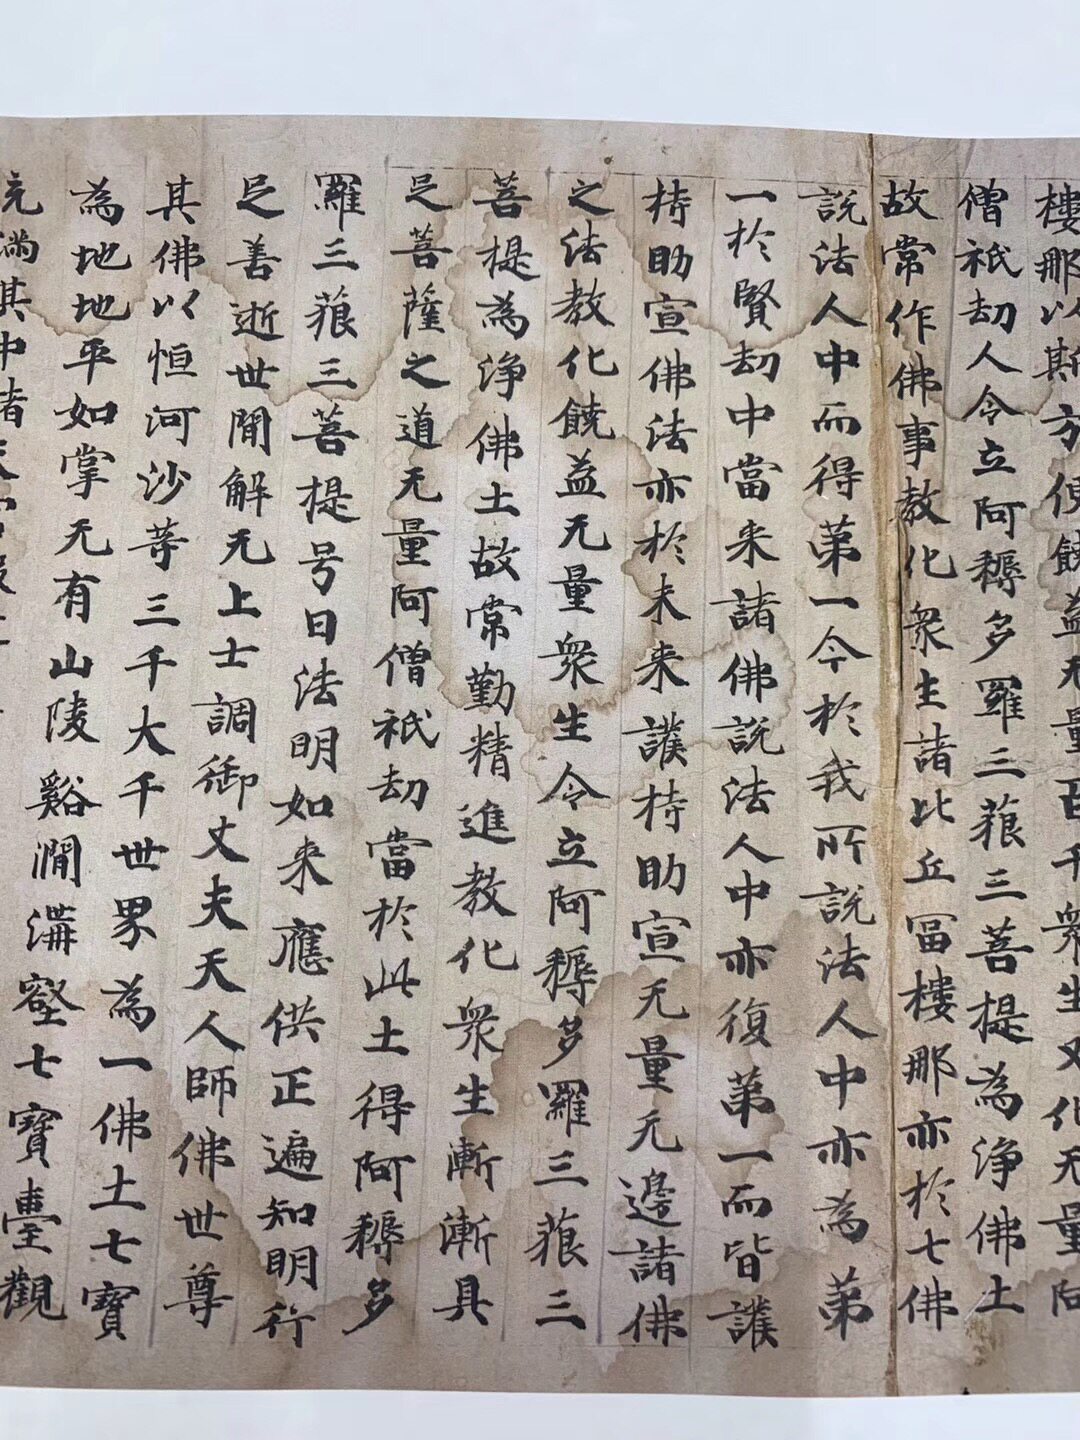 樓那以斯方便饒益无量百千衆生又化无量阿
僧祇劫人令立阿耨多羅三藐三菩提為淨佛土
故常作佛事教化衆生諸比丘冨樓那亦於七佛
説法人中而得第一今於我所説法人中亦為第
一於賢劫中當来諸佛説法人中亦復第一而皆護
持助宣佛法亦於未来護持助宣无量无邊諸佛
之法教化饒益无量衆生令立阿耨多羅三藐三
菩提為淨佛土故常勤精進教化衆生漸漸具
足菩薩之道无量阿僧祇劫當於此土得阿耨多
羅三藐三菩提号曰法明如来應供正遍知明行
足善逝世間解无上士調御丈夫天人師佛世尊
其佛以恒河沙等三千大千世界為一佛土七寶
為地地平如掌无有山陵谿澗溝壑七寶臺觀
充滿其中諸天